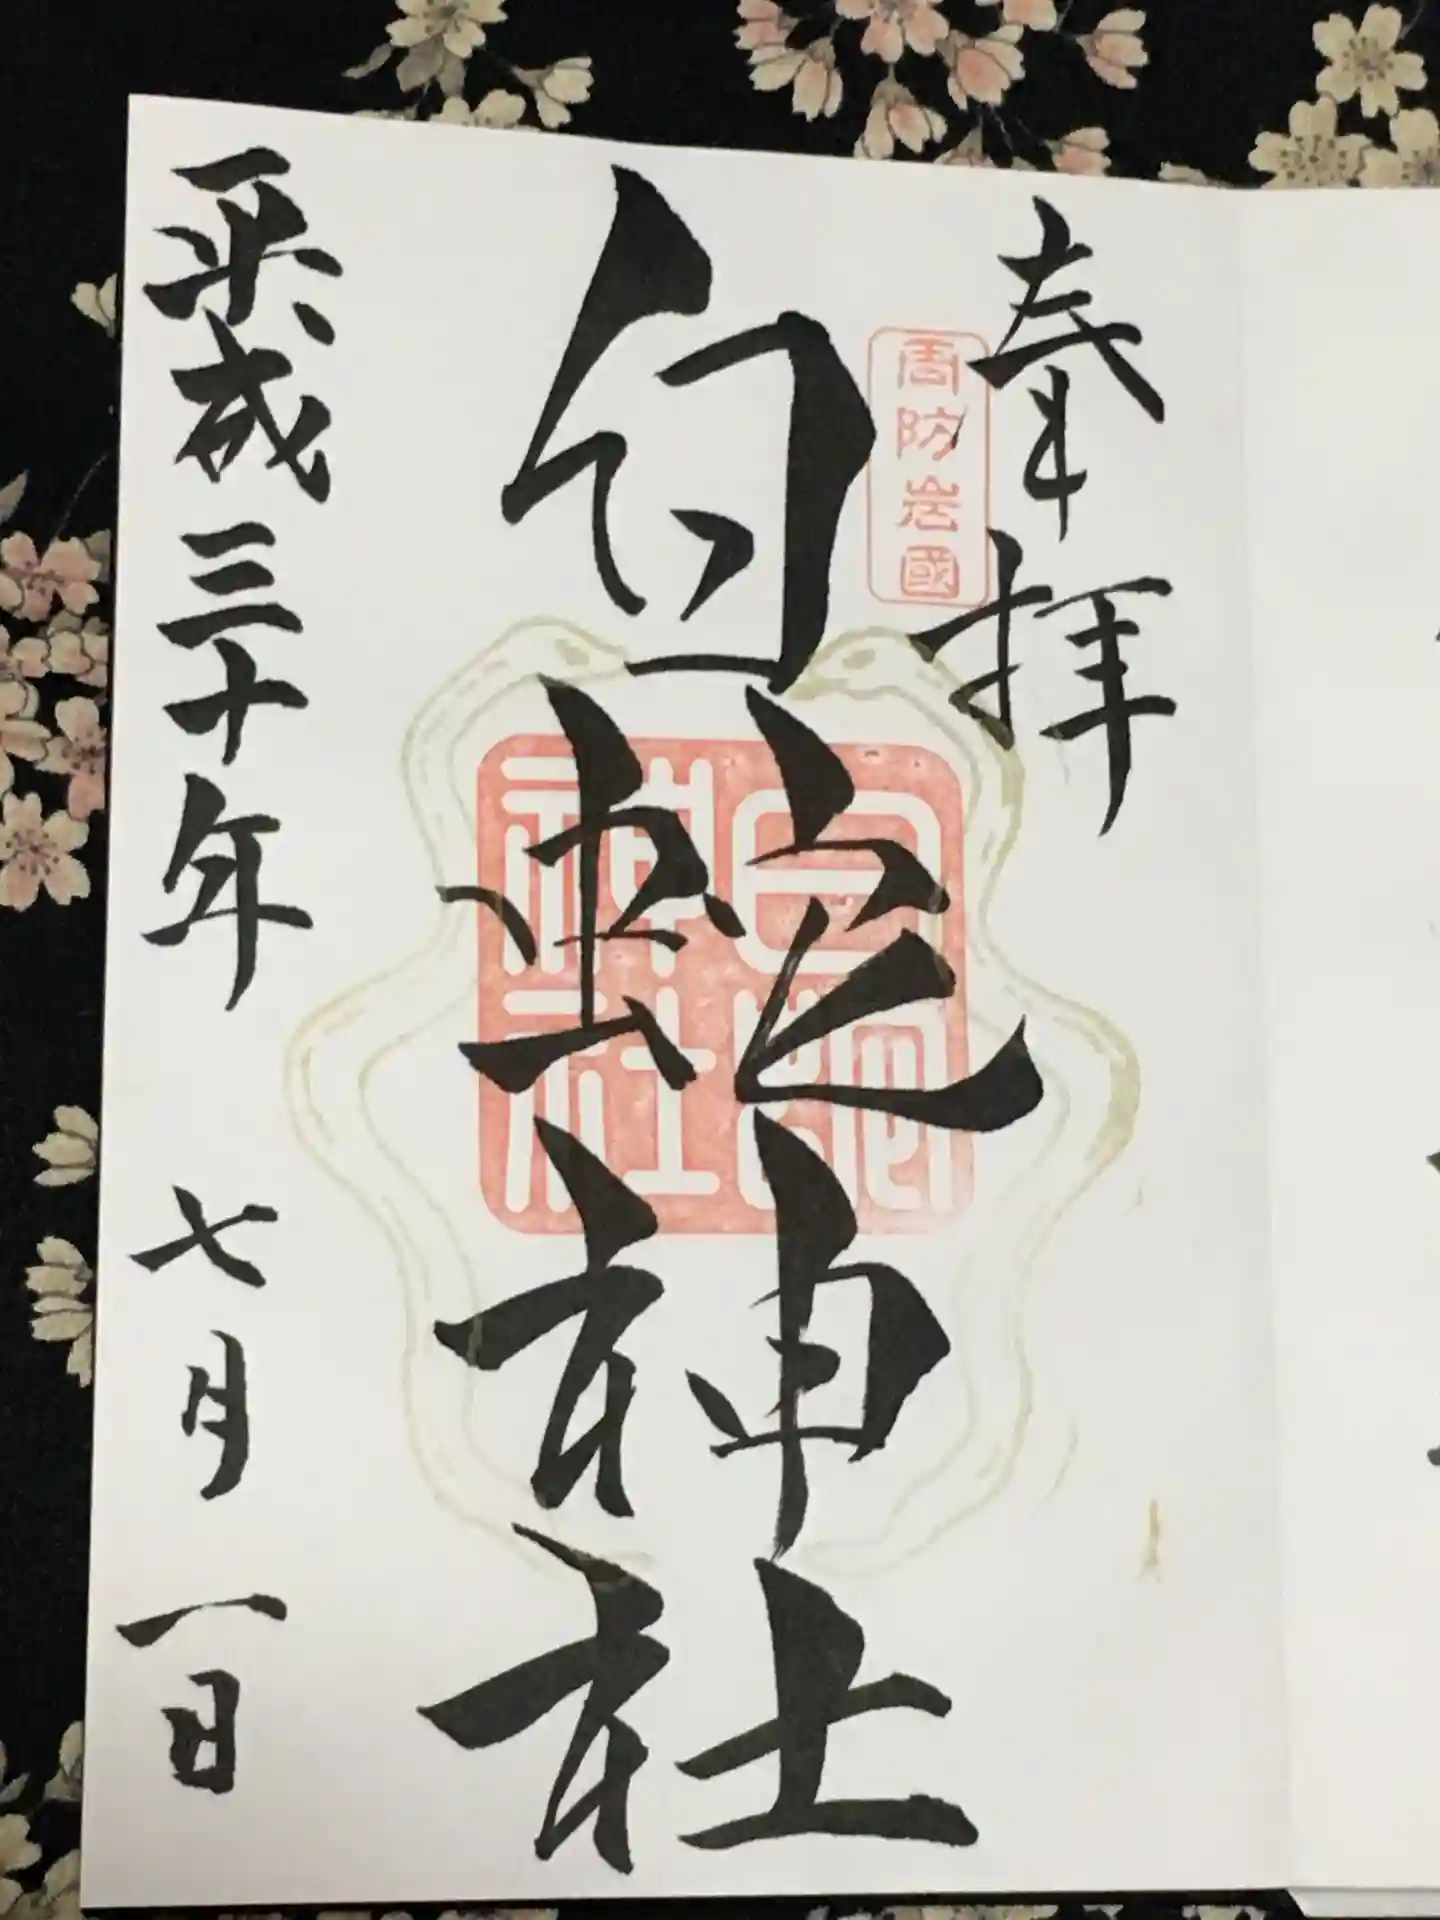 奉拝
周防岩國
白蛇神社
白蛇神社
平成三十年 七月一日